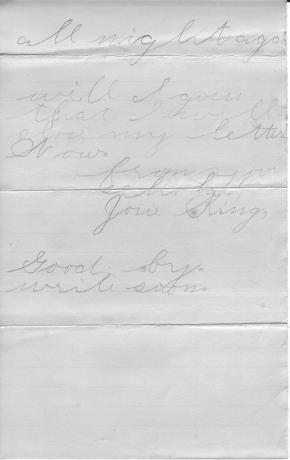 all night ago
will I guess
that I will
close my letter
Now.
from your
Jow King,
Good. by.
write soon.